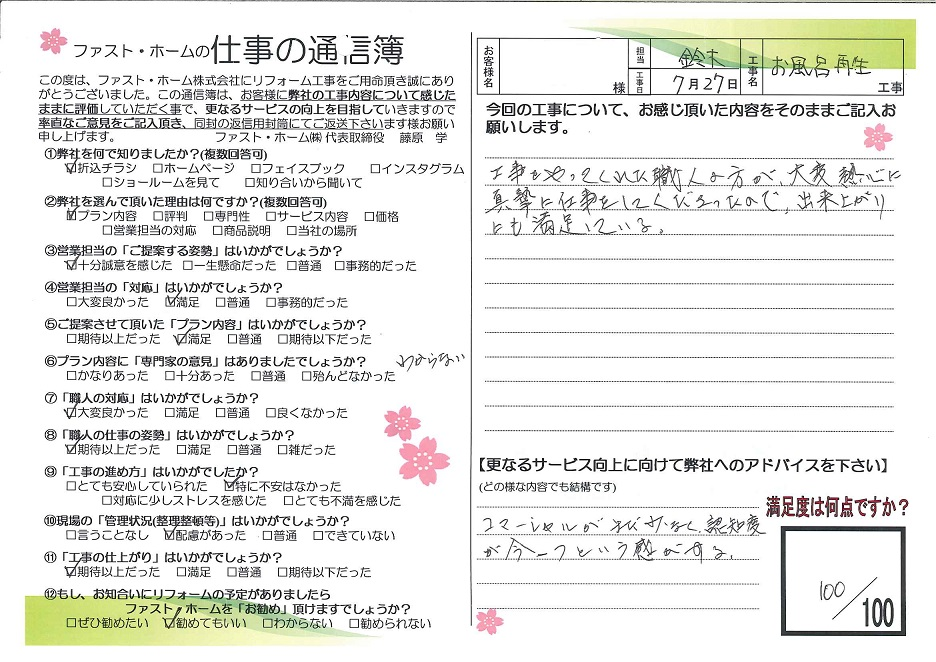 ファスト・ホームの仕事の通信簿
この度は、ファスト・ホーム株式会社にリフォーム工事をご用命頂き誠にあり
がとうございました。この通信簿は、お客様に弊社の工事内容について感じた
ままに評価していただく事で、更なるサービスの向上を目指していきますので
率直なご意見をご記入頂き、同封の返信用封筒にてご返送下さいます様お願い
申し上げます。 ファスト・ホーム㈱ 代表取締役 藤原 学
①弊社を何で知りましたか?(複数回答可)
☑折込チラシ □ホームページ □フェイスブック □インスタグラム
□ショールームを見て □知り合いから聞いて
②弊社を選んで頂いた理由は何ですか?(複数回答可)
☑プラン内容 □評判 □専門性 □サービス内容 □価格
□営業担当の対応 □商品説明 □当社の場所
③営業担当の「ご提案する姿勢」はいかがでしょうか?
☑十分誠意を感じた □一生懸命だった □普通 □事務的だった
④営業担当の「対応」はいかがでしょうか?
□大変良かった ☑満足 □普通 □事務的だった
⑤ご提案させて頂いた「プラン内容」はいかがでしょうか?
□期待以上だった ☑満足 □普通 □期待以下だった
⑥プラン内容に「専門家の意見」はありましたでしょうか? わからない
□かなりあった □十分あった □普通 □殆んどなかった
⑦「職人の対応」はいかがでしょうか?
☑大変良かった □満足 □普通 □良くなかった
⑧「職人の仕事の姿勢」はいかがでしょうか?
☑期待以上だった □満足 □普通 □雑だった
⑨「工事の進め方」はいかがでしたか?
□とても安心していられた ☑特に不安はなかった
□対応に少しストレスを感じた □とても不満を感じた
⑩現場の「管理状況(整理整頓等)」はいかがでしょうか?
□言うことなし ☑配慮があった □普通 □できていない
⑪「工事の仕上がり」はいかがでしょうか?
☑期待以上だった □満足 □普通 □期待以下だった
⑫もし、お知合いにリフォームの予定がありましたら
ファスト・ホームを「お勧め」頂けますでしょうか?
□ぜひ勧めたい ☑勧めてもいい □わからない □勧められない
お客様名 様 担当 鈴木 工事日 7月27日 工事名 お風呂再生 工事
今回の工事について、お感じ頂いた内容をそのままご記入お
願いします。
工事をやってくれた職人の方が、大変熱心に
真摯に仕事をしてくださったので、出来上がり
にも満足している。
【更なるサービス向上に向けて弊社へのアドバイスを下さい】
(どの様な内容でも結構です)
コマーシャルが少なく、認知度
が今一つという感がする。
満足度は何点ですか?
100/100